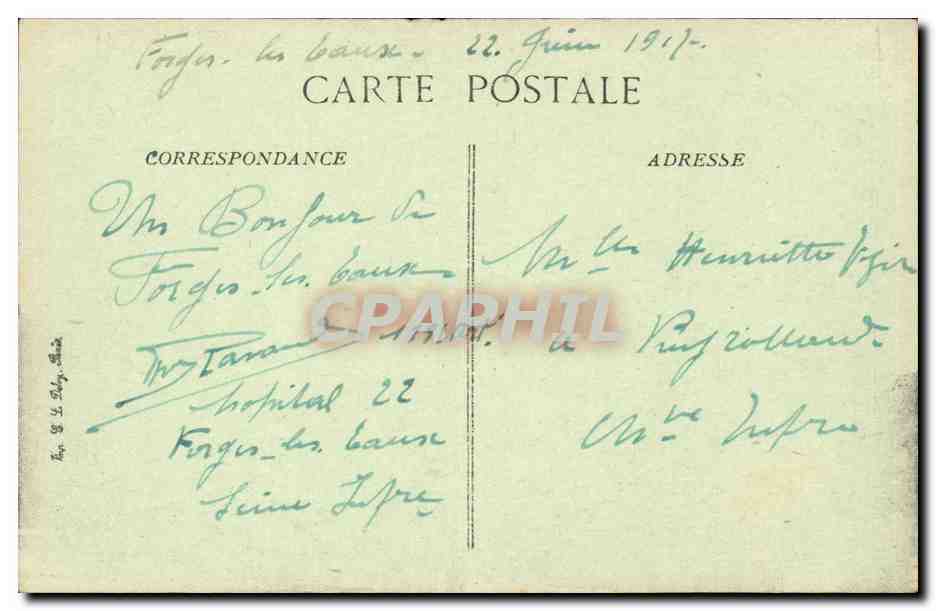 Forges-les Eaux. 22. Juin 1917.
CARTE POSTALE
CORRESPONDANCE
ADRESSE
Un Bonjour de
Forges. les. Eaux
Hopital 22
Forges-les. Eaux
Seine Infre
Mlle Henriette
a
Chte Infre
CPAPHIL
Imp. E. L. Deley, Paris